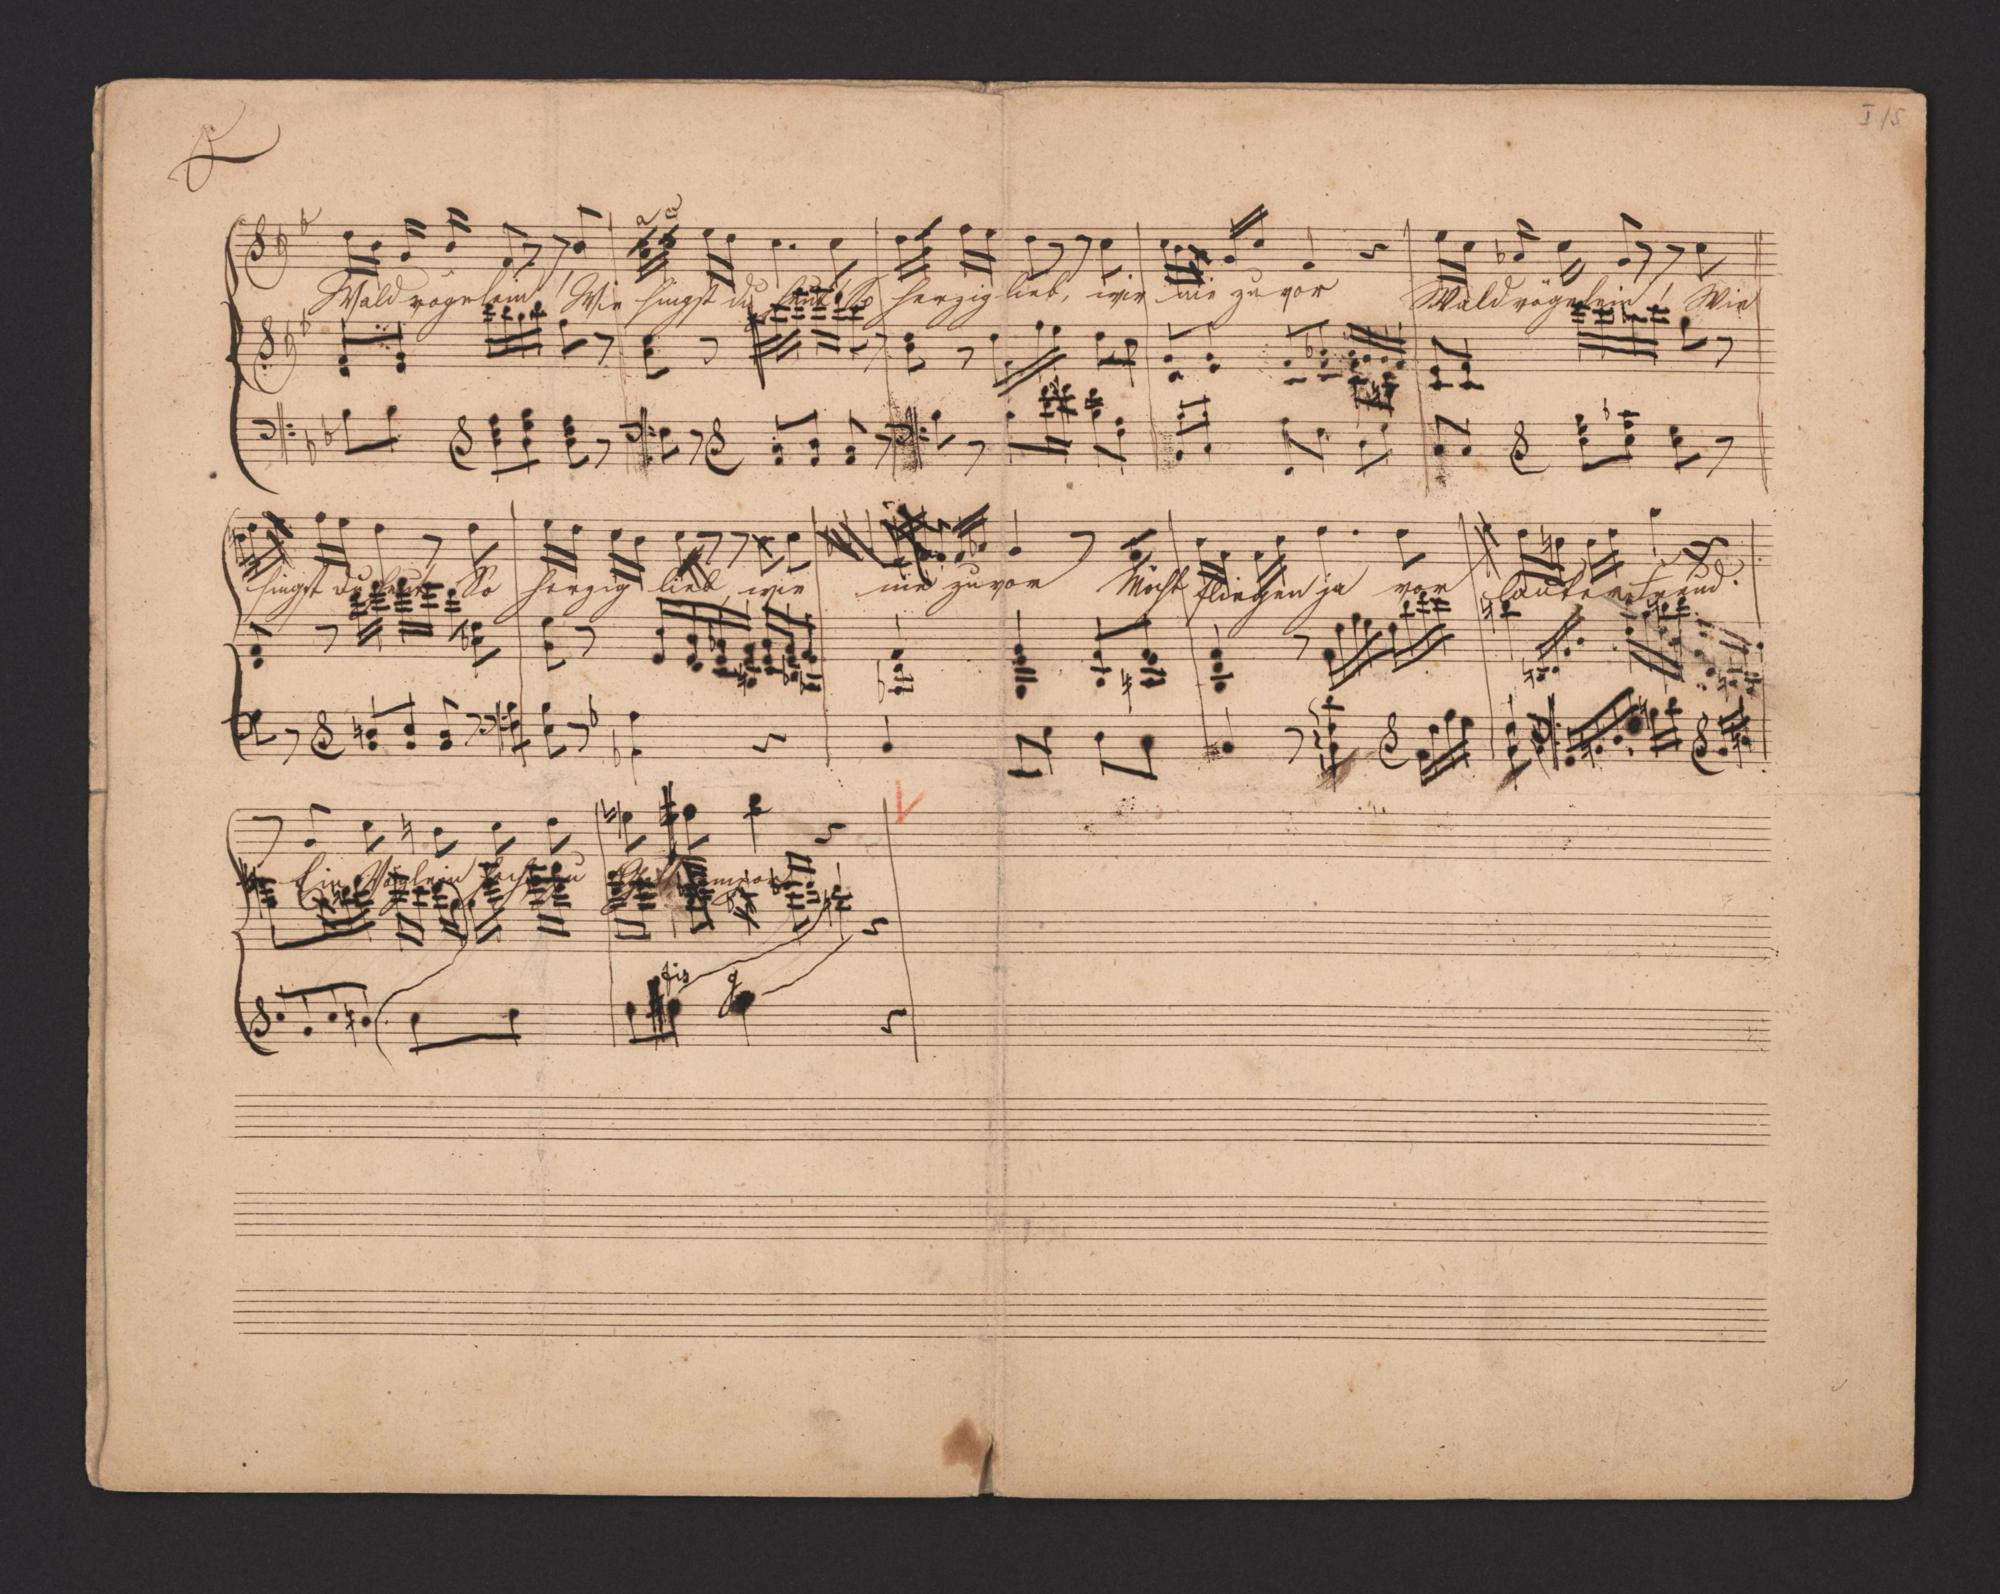 I/5
a c
Waldvögelein! Wie singst du heut! So herzig lieb, wie nie zuvor Waldvögelein! Wie
singst du heut So herzig lieb, wie nie zuvor Möcht fliegen ja vor lauter Freud.
Ein Vöglein hoch zu empor
fis g